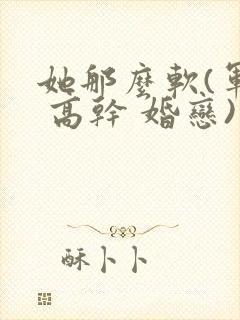 她那麼軟(軍
高幹 婚戀)
酥卜卜